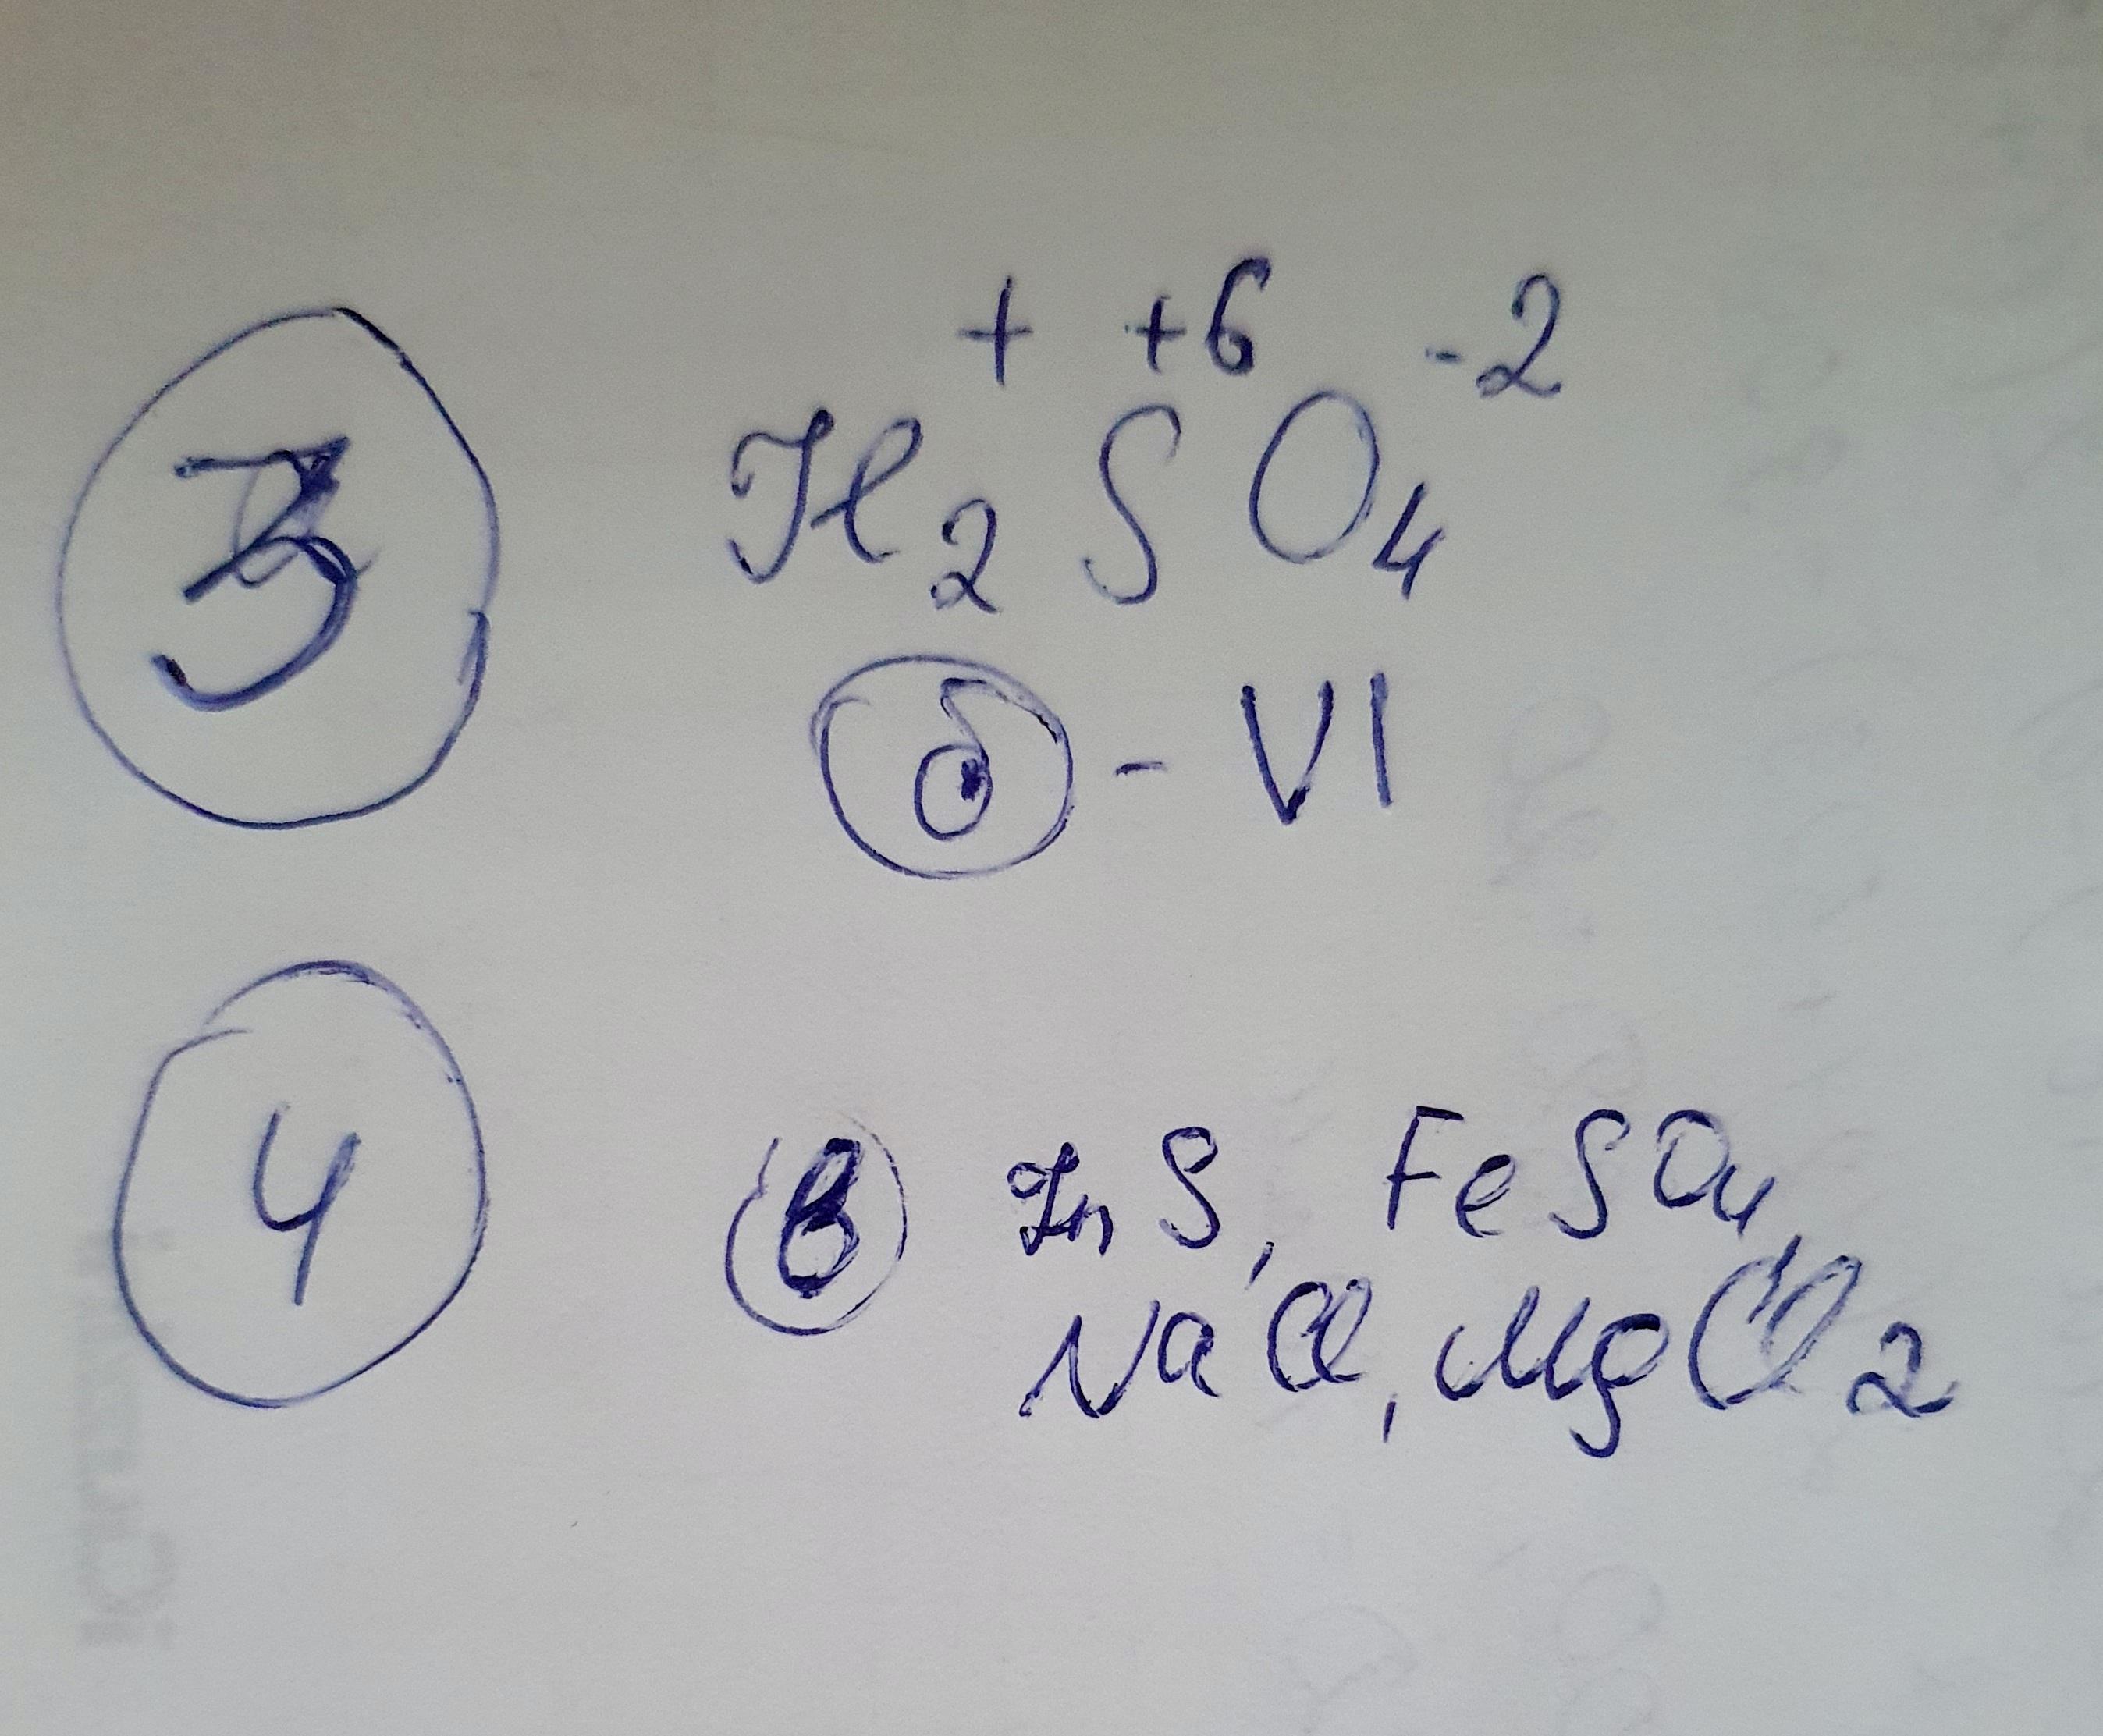 3
+ +6 -2
H2SO4
б - VI
4
в ZnS, FeSO4,
NaCl, MgCl2